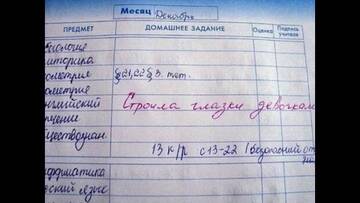 Месяц Декабрь
ПРЕДМЕТ ДОМАШНЕЕ ЗАДАНИЕ Оценка Подпись учителя
иторика
ометрия §21,22 § 3. тет.
ометрия
нглийский Строила глазки девочкам
чтение
бществознан.
13 к/р с 13-22 (Безопасный от
форматика
сский язык